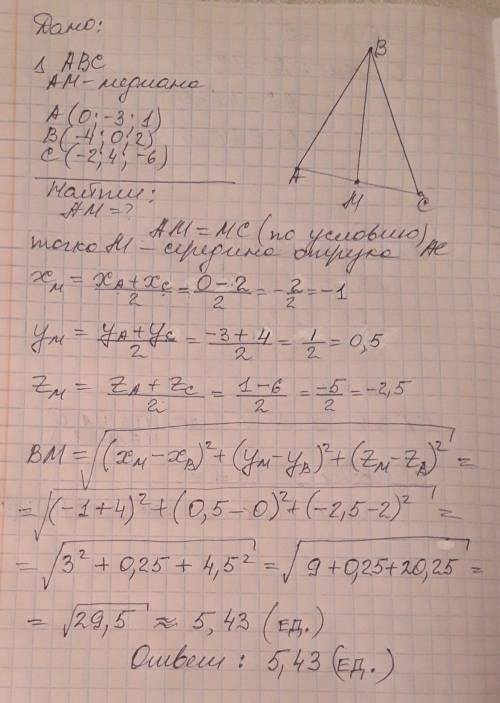 Дано:
1 ABC
AM - медиана
A (0; -3; 1)
B (-4; 0; 2)
C (-2; 4; -6)
Найти:
AM = ?
B
A
M
C
AM = MC (по условию)
точка M - середина отрезка AC
x_M = (x_A + x_C)/2 = (0 - 2)/2 = -2/2 = -1
y_M = (y_A + y_C)/2 = (-3 + 4)/2 = 1/2 = 0,5
z_M = (z_A + z_C)/2 = (1 - 6)/2 = -5/2 = -2,5
BM = √((x_M - x_B)² + (y_M - y_B)² + (z_M - z_B)²) =
= √((-1 + 4)² + (0,5 - 0)² + (-2,5 - 2)²) =
= √(3² + 0,25 + 4,5²) = √(9 + 0,25 + 20,25) =
= √29,5 ≈ 5,43 (ед.)
Ответ: 5,43 (ед.)